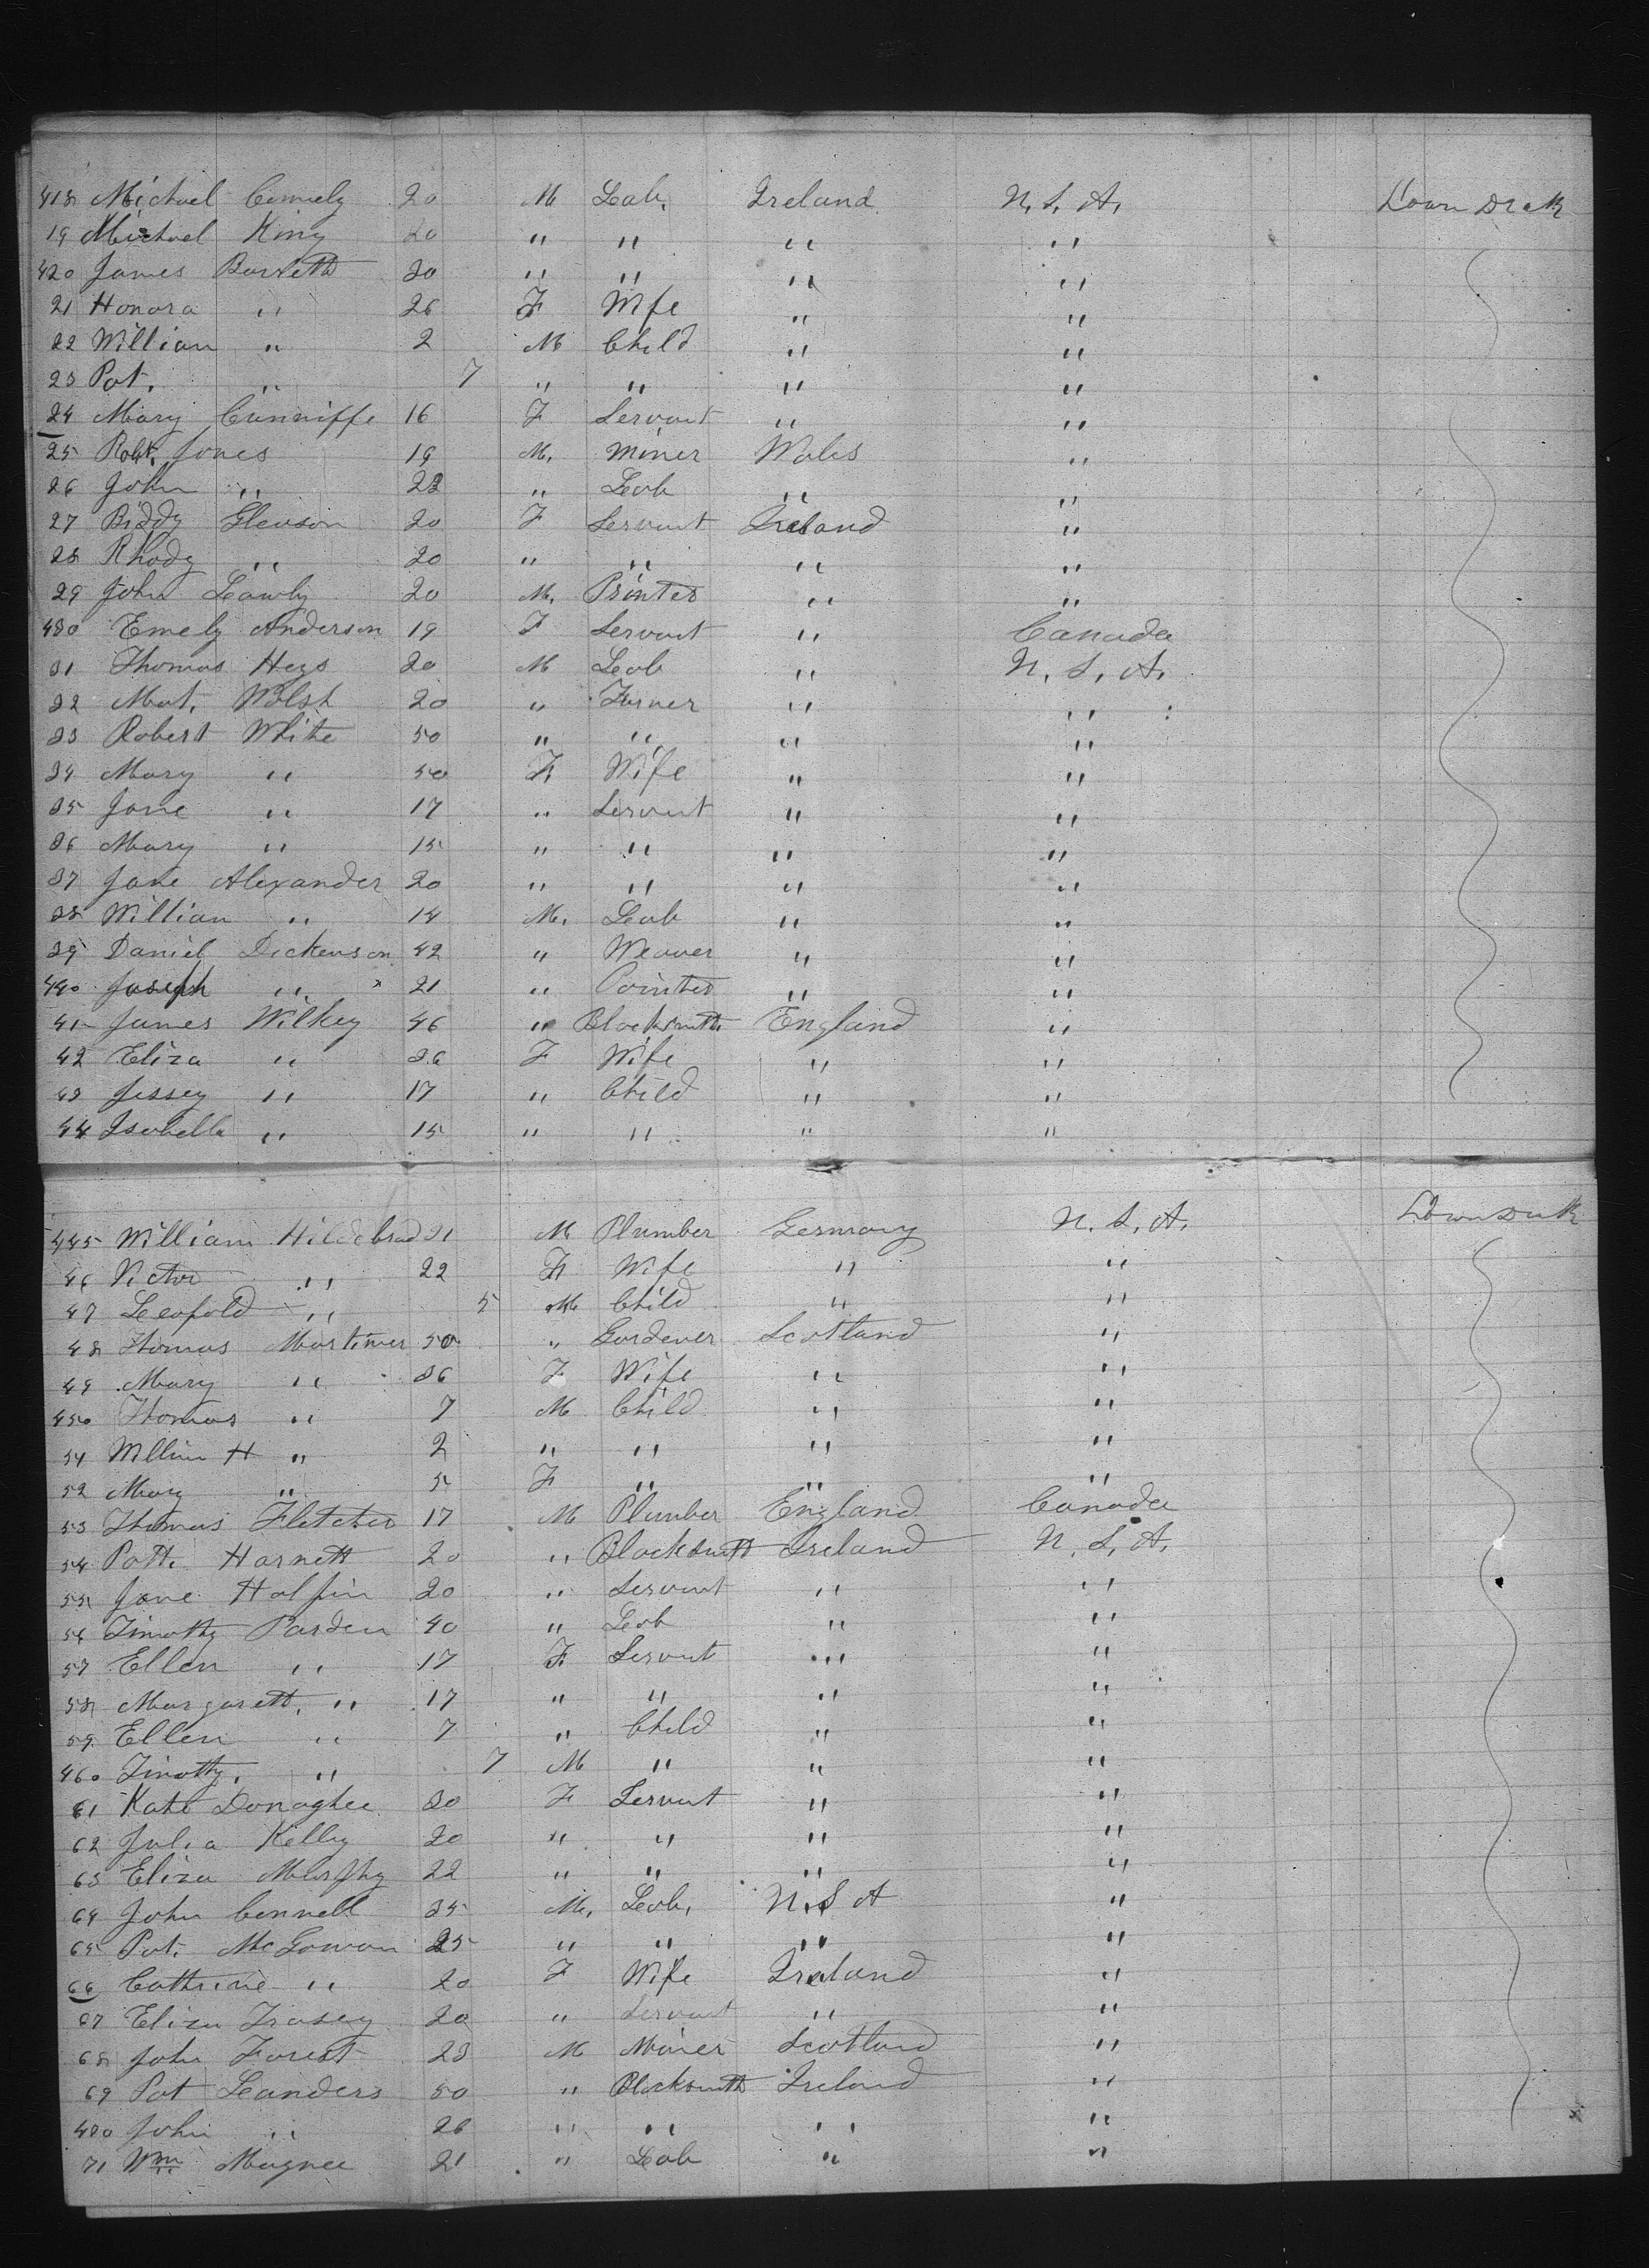 418 Michael 20 M Lab. Ireland N. S. A. Down Deck
19 Michael King 20 " " " "
420 James Barrett 30 " " " "
21 Honora " 26 F Wife " "
22 William " 2 M Child " "
23 Pat. " 7 " " " "
24 Mary Cunniffe 16 F Servant " "
25 Robt. Jones 19 M. Miner Wales "
26 John " 23 " Lab " "
27 Biddy Gleason 20 F Servant Ireland "
28 Rhody " 20 " " " "
29 John Lawly 20 M. Printer " "
430 Emely Anderson 19 F Servant " Canada
31 Thomas Hegs 20 M Lab " N. S. A.
32 Mat. Walsh 20 " Farmer " "
33 Robert White 50 " " " "
34 Mary " 50 F Wife " "
35 Jane " 17 " Servant " "
36 Mary " 15 " " " "
37 Jane Alexander 20 " " " "
38 William " 14 M. Lab " "
39 Daniel Dickenson 42 " Weaver " "
440 Joseph " 21 " " "
41 James Wilkey 46 " Blacksmith England "
42 Eliza " 36 F Wife " "
43 Jessey " 17 " Child " "
44 Isabella " 15 " " " "
445 William 31 M Plumber Germany N. S. A. Down Deck
46 Victor " 22 F Wife " "
47 Leopold " 5 M Child " "
48 Thomas Mortimer 50 " Gardener Scotland "
49 Mary " 36 F Wife " "
450 Thomas " 7 M Child " "
51 William H " 2 " " " "
52 Mary " 5 F " " "
53 Thomas Fletcher 17 M Plumber England Canada
54 Patt. Harnett 20 " Blacksmith Ireland N. S. A.
55 Jane Halpin 20 " Servant " "
56 Timothy Parden 40 " Lab " "
57 Ellen " 17 F Servant " "
58 Margarett. " 17 " " " "
59 Ellen " 7 " Child " "
460 Timothy. " 7 M " " "
61 Kate Donaghee 30 F Servant " "
62 Julia Kelly 20 " " " "
63 Eliza Morphy 22 " " " "
64 John Connell 35 M. Lab. N. S A "
65 Pat. McGowan 25 " " " "
66 Cathrine " 20 F Wife Ireland "
67 Eliza Trasey 20 " Servant " "
68 John Forest 23 M Miner Scotland "
69 Pat Landers 50 " Blacksmith Ireland "
470 John " 26 " " " "
71 Wm Magnee 21 " Lab " "